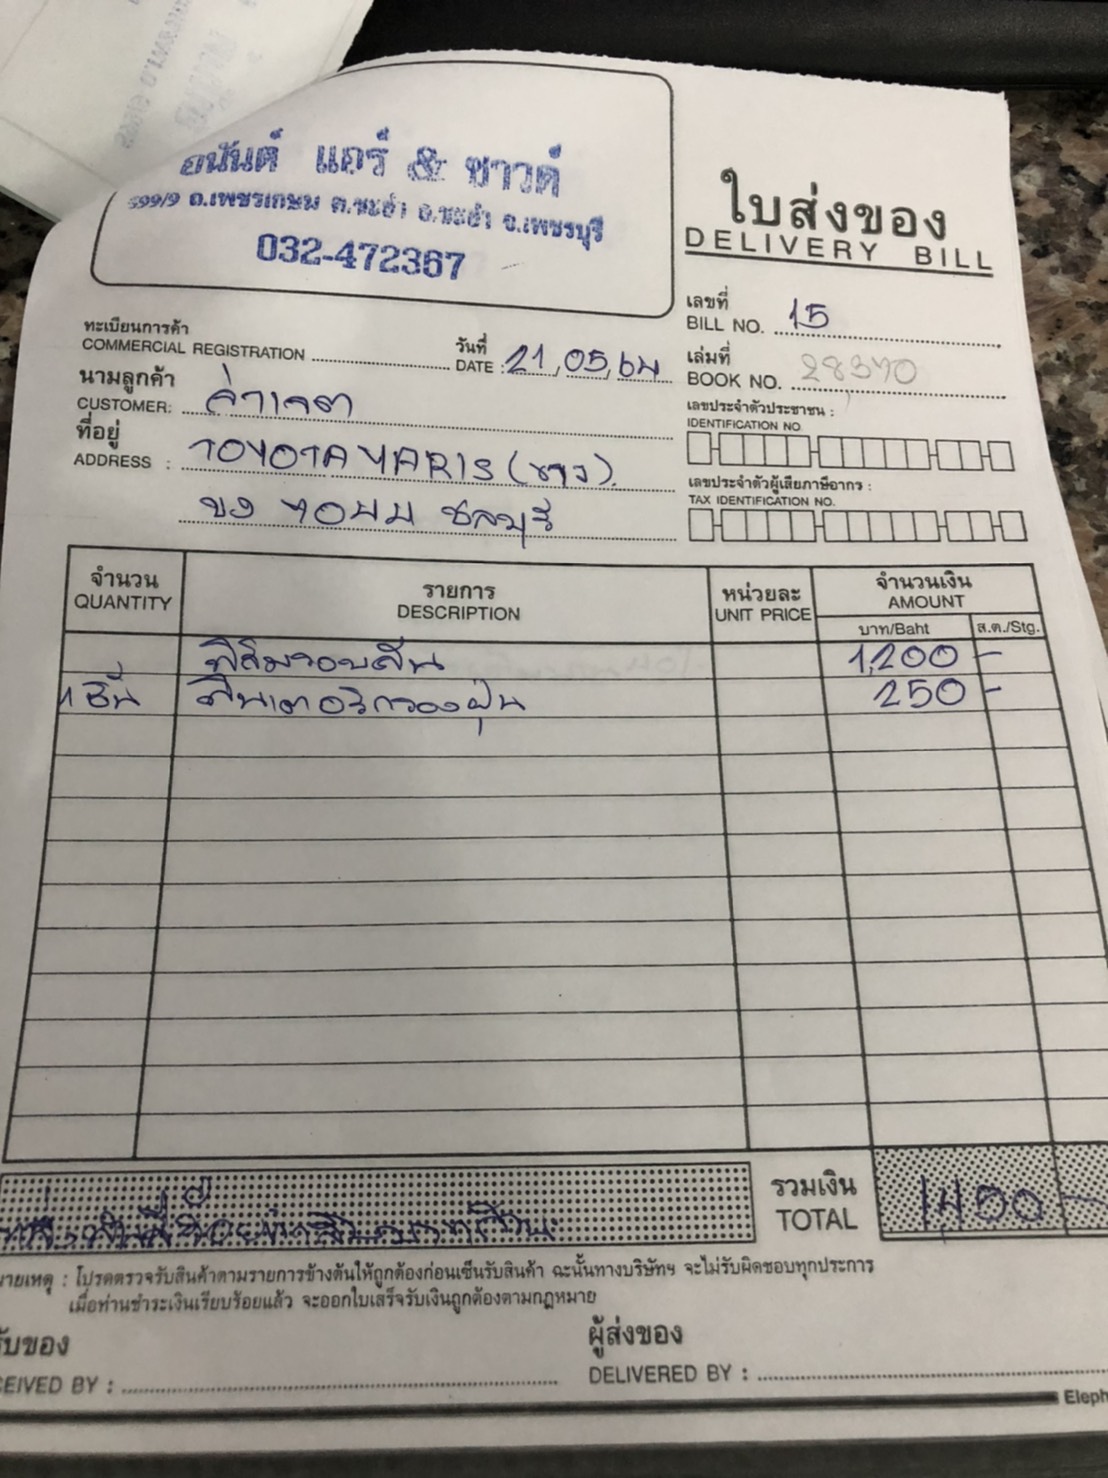 อนันต์ แอร์ & ซาวด์
699/9 ถ.เพชรเกษม ต.ชะอำ อ.ชะอำ จ.เพชรบุรี
032-472367
ใบส่งของ
DELIVERY BILL
เลขที่
BILL NO. 15
ทะเบียนการค้า
COMMERCIAL REGISTRATION
วันที่
DATE : 21,05,64
เล่มที่
BOOK NO. 28370
นามลูกค้า
CUSTOMER:
เลขประจำตัวประชาชน :
IDENTIFICATION NO.
ที่อยู่
ADDRESS : TOYOTA YARIS (ขาว).
เลขประจำตัวผู้เสียภาษีอากร :
TAX IDENTIFICATION NO.
ชลบุรี
จำนวน รายการ หน่วยละ จำนวนเงิน
QUANTITY DESCRIPTION UNIT PRICE AMOUNT
บาท/Baht ส.ต./Stg.
ฟิล์มรอบคัน 1,200 -
1 ชิ้น ฟิลเตอร์กรองฝุ่น 250 -
รวมเงิน
TOTAL 1,450 -
หมายเหตุ : โปรดตรวจรับสินค้าตามรายการข้างต้นให้ถูกต้องก่อนเซ็นรับสินค้า ฉะนั้นทางบริษัทฯ จะไม่รับผิดชอบทุกประการ
เมื่อท่านชำระเงินเรียบร้อยแล้ว จะออกใบเสร็จรับเงินถูกต้องตามกฎหมาย
รับของ ผู้ส่งของ
CEIVED BY : DELIVERED BY :
Eleph